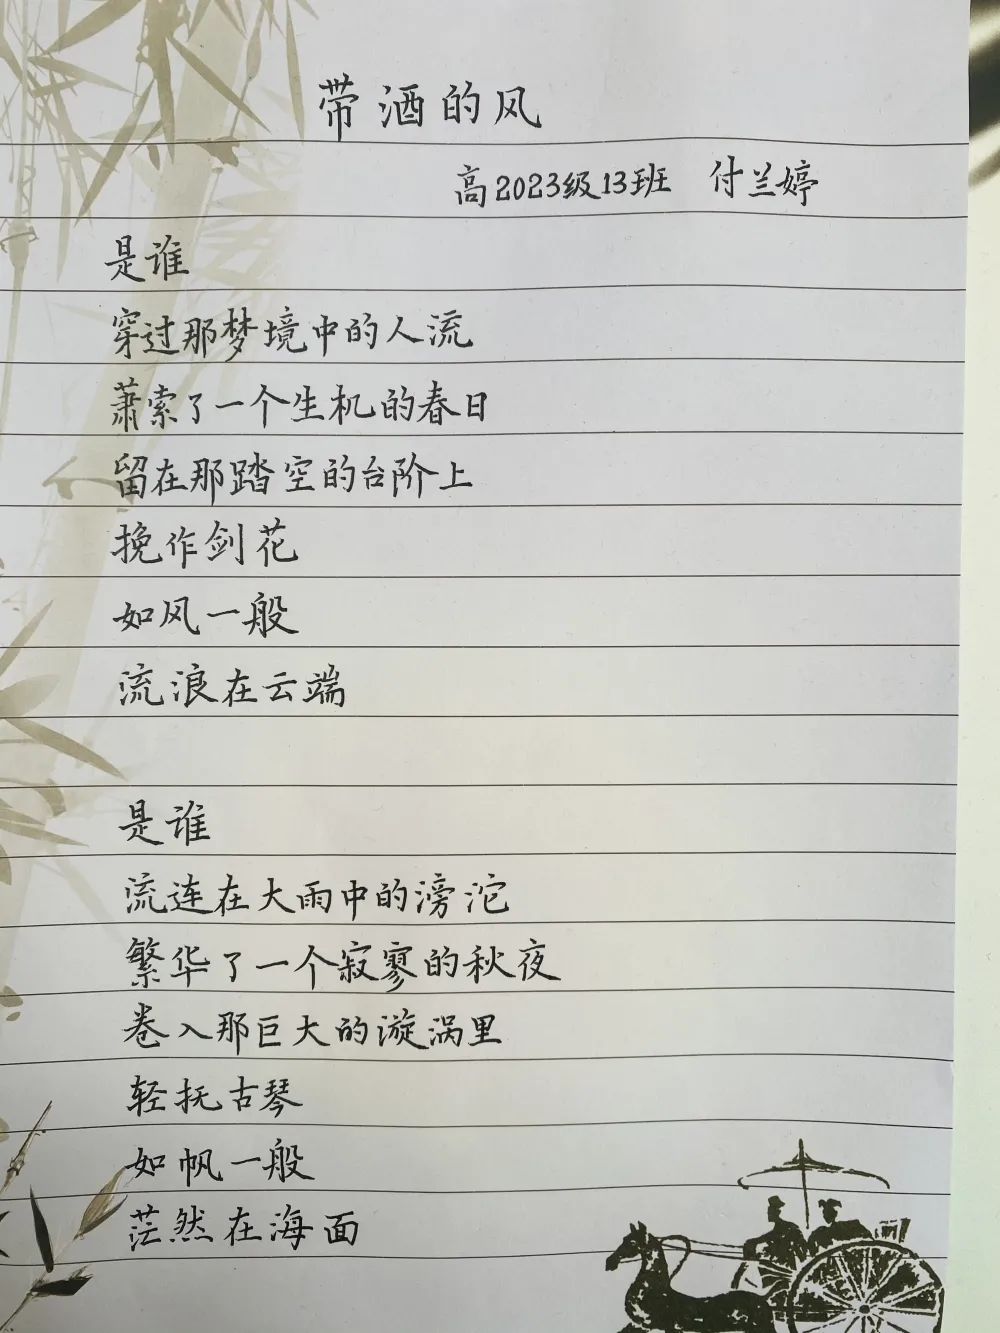 带酒的风
高2023级13班 付兰婷
是谁
穿过那梦境中的人流
萧索了一个生机的春日
留在那踏空的台阶上
挽作剑花
如风一般
流浪在云端
是谁
流连在大雨中的滂沱
繁华了一个寂寥的秋夜
卷入那巨大的漩涡里
轻抚古琴
如帆一般
茫然在海面